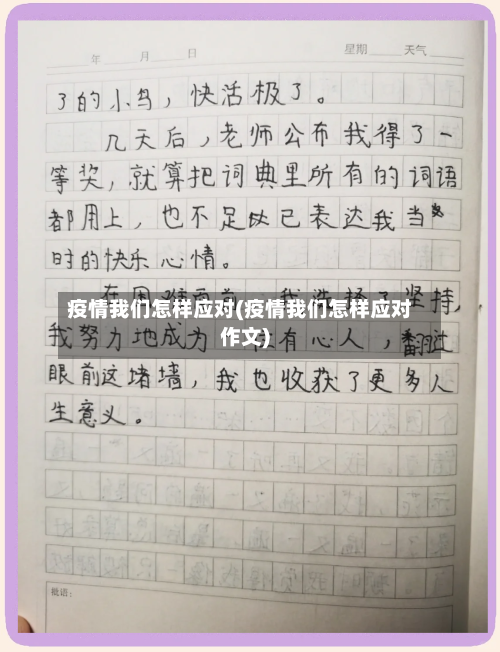 年 月 日 星期 天气
了的小鸟，快活极了。
几天后，老师公布我得了一
等奖，就算把词典里所有的词语
都用上，也不足以已表达我当
时的快乐心情。
在困难面前，我选择了坚持，
疫情我们怎样应对(疫情我们怎样应对
作文)
我努力地成为 有心人，翻过
眼前这堵墙，我也收获了更多人
生意义。
批语：